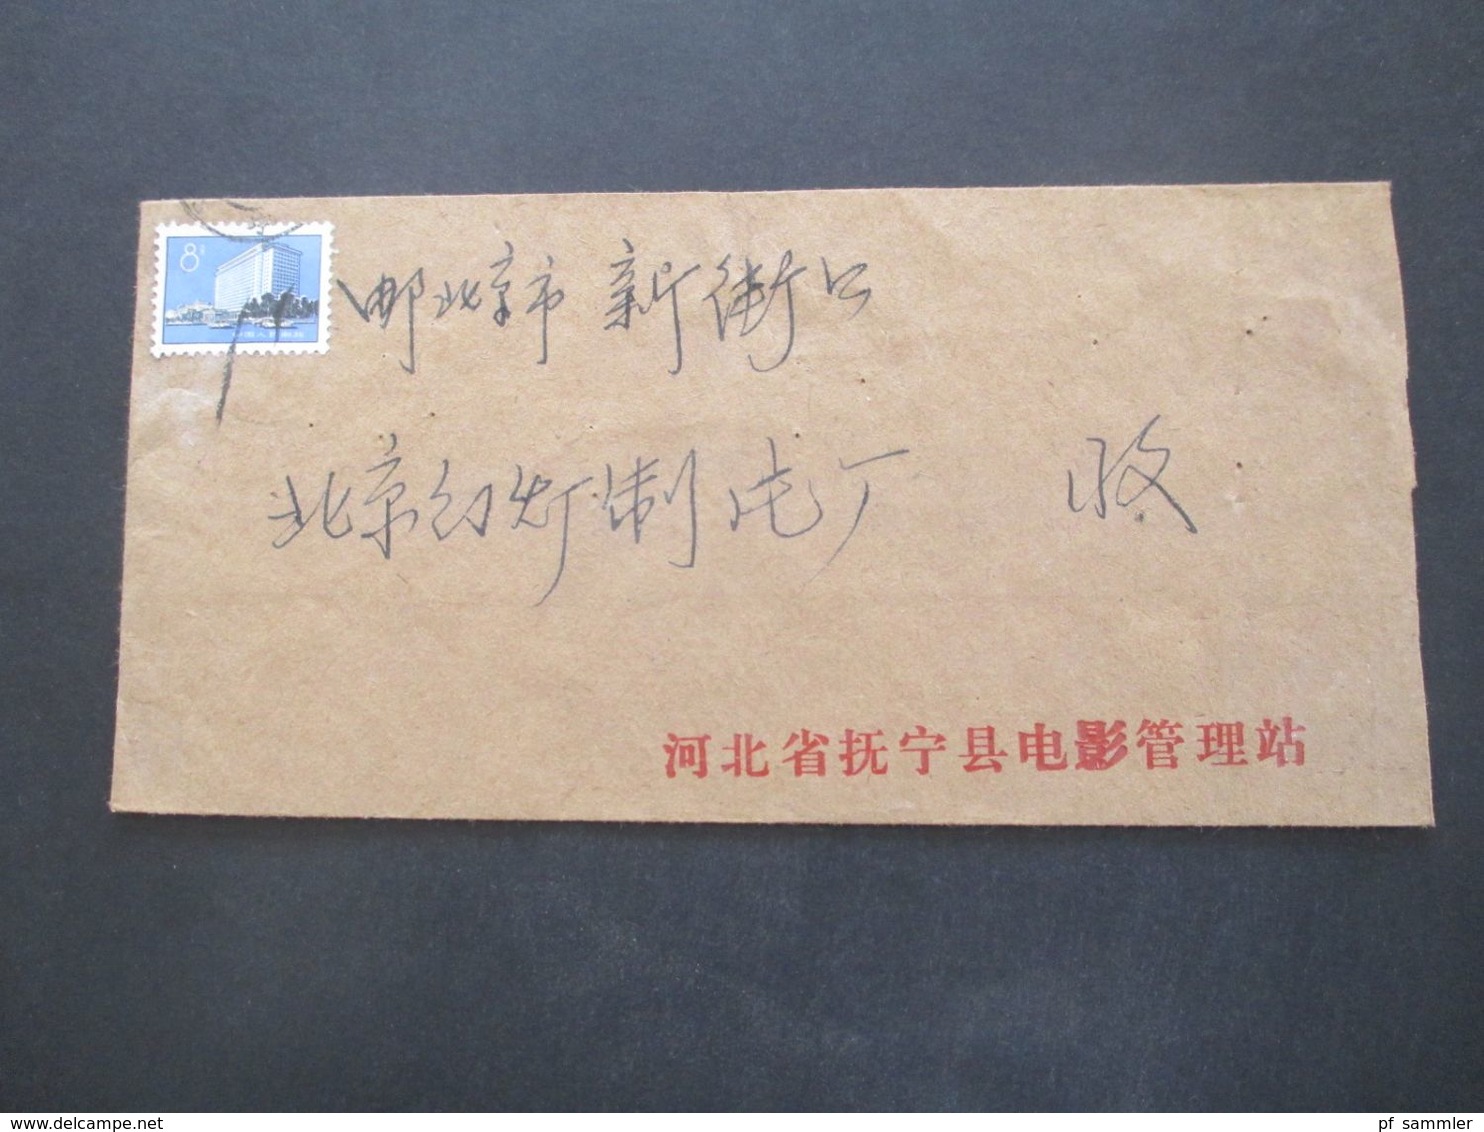 8分
中国人民邮政
邮北京市 新街口
北京幻灯制片厂 收
河北省抚宁县电影管理站
delcampe.net
pf_sammler